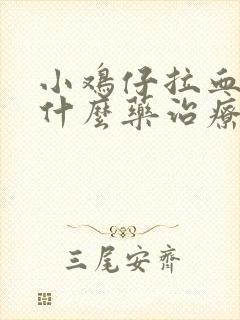 小鸡仔拉血
什麼藥治療
三尾安齊